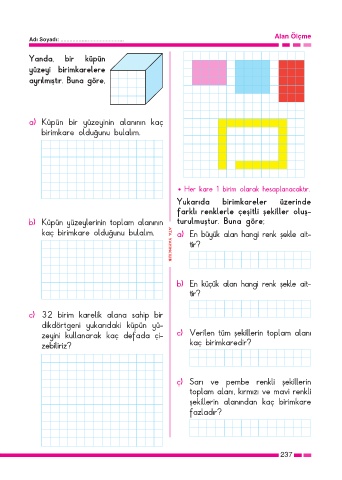 Adı Soyadı: ........................................
Alan Ölçme
Yanda, bir küpün
yüzeyi birimkarelere
ayrılmıştır. Buna göre,
a) Küpün bir yüzeyinin alanının kaç
birimkare olduğunu bulalım.
b) Küpün yüzeylerinin toplam alanının
kaç birimkare olduğunu bulalım.
c) 32 birim karelik alana sahip bir
dikdörtgeni yukarıdaki küpün yü-
zeyini kullanarak kaç defada çi-
zebiliriz?
• Her kare 1 birim olarak hesaplanacaktır.
Yukarıda birimkareler üzerinde
farklı renklerle çeşitli şekiller oluş-
turulmuştur. Buna göre;
a) En büyük alan hangi renk şekle ait-
tir?
b) En küçük alan hangi renk şekle ait-
tir?
c) Verilen tüm şekillerin toplam alanı
kaç birimkaredir?
ç) Sarı ve pembe renkli şekillerin
toplam alanı, kırmızı ve mavi renkli
şekillerin alanından kaç birimkare
fazladır?
237